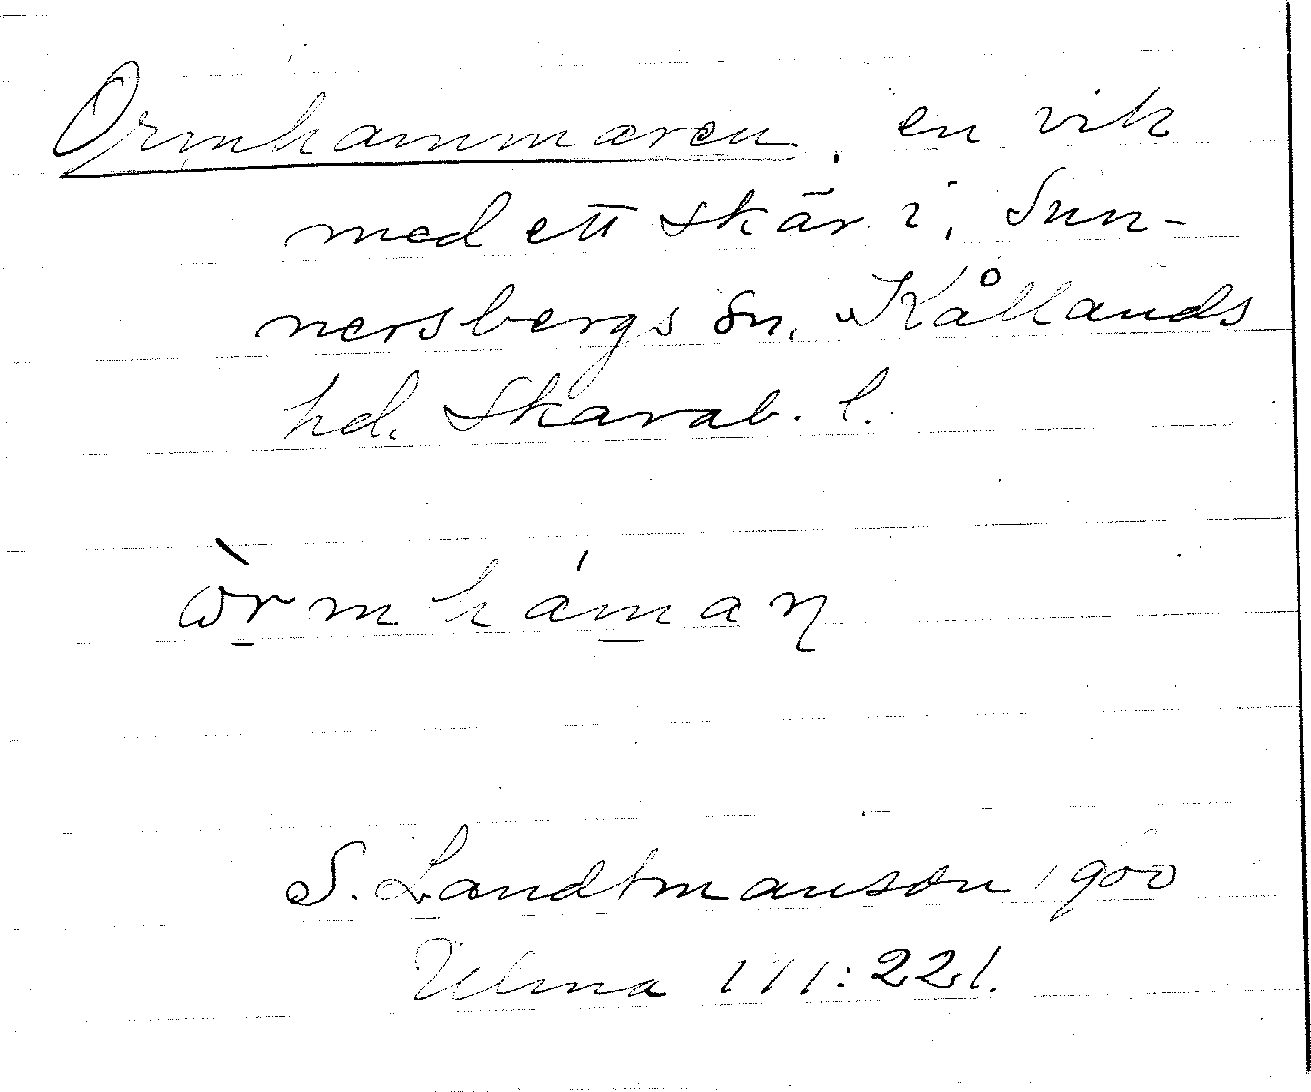 Ormhammaren, en vik
med ett skär i, Sun-
nersbergs sn. Kållands
hd. Skarab. l.
ὼrmháman
S. Landtmanson 1900
Ulma 111:221.